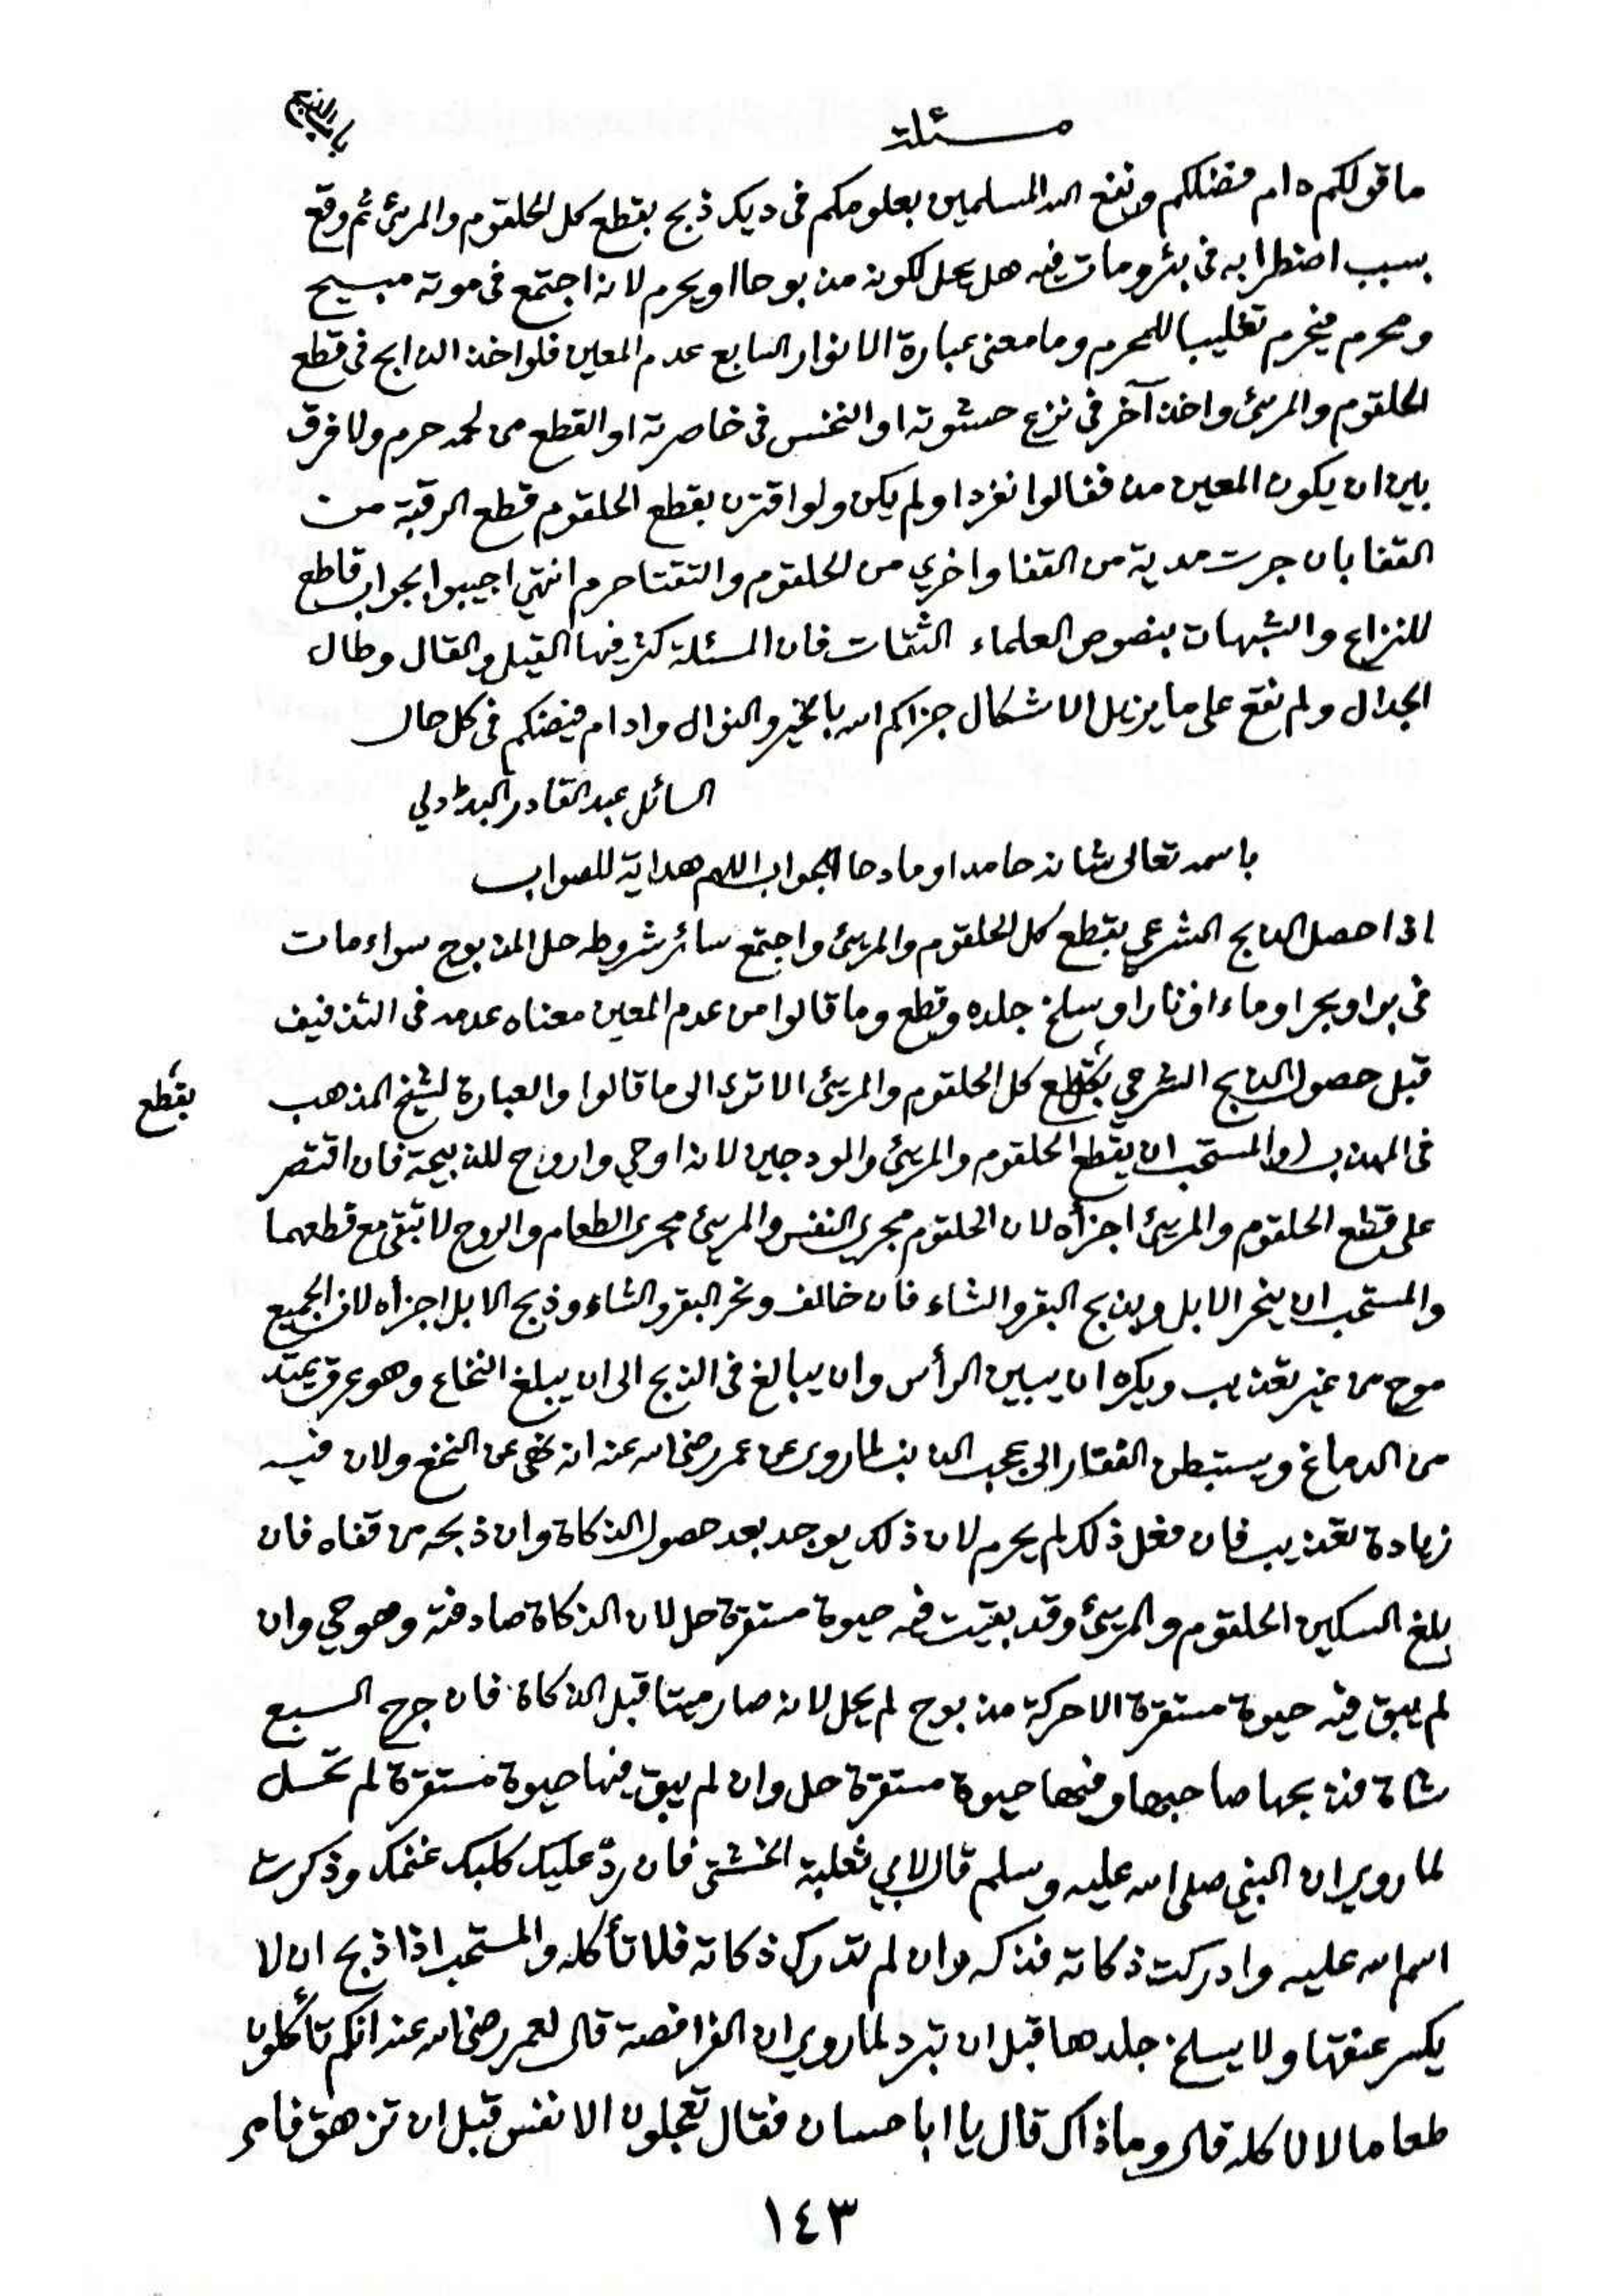 باب الذبح
مسئلة
ما قولكم دام فضلكم ونفع الله المسلمين بعلومكم فى ديك ذبح بقطع كل الحلقوم والمرئ ثم وقع
بسبب اضطرابه فى بئر ومات فيه هل يحل لكونه مذبوحا او يحرم لانه اجتمع فى موته مبيح
ومحرم فيحرم تغليبا للمحرم وما معنى عبارة الانوار السابع عدم المعين فلو اخذ الذابح فى قطع
الحلقوم والمرئ واخذ آخر فى نزع حشوته او النخس فى خاصرته او القطع من لحمه حرم ولا فرق
بين ان يكون المعين مذففا لو انفرد او لم يكن ولو اقترن بقطع الحلقوم قطع الرقبة من
القفا بان جرت مدية من القفا واخري من الحلقوم والتقتا حرم انتهى اجيبوا بجواب قاطع
للنزاع والشبهات بنصوص العلماء الثقات فان المسئلة كثر فيها القيل والقال وطال
الجدال ولم نقع على ما يزيل الاشكال جزاكم الله بالخير والنوال وادام فيضكم فى كل حال
السائل عبد القادر
باسمه تعالى شانه حامدا ومادحا الجواب اللهم هداية للصواب
اذا حصل الذبح الشرعي بقطع كل الحلقوم والمرئ واجتمع سائر شروطه حل المذبوح سواء مات
فى بر او بحر او ماء او نار او سلخ جلده وقطع وما قالوا من عدم المعين معناه عدمه فى التذفيف
قبل حصول الذبح الشرعي بقطع كل الحلقوم والمرئ الا ترى الى ما قالوا والعبارة لشيخ المذهب
بقطع
فى المهذب (والمستحب ان يقطع الحلقوم والمرئ والودجين لانه اوحي واروح للذبيحة فان اقتصر
على قطع الحلقوم والمرئ اجزأه لان الحلقوم مجرى النفس والمرئ مجرى الطعام والروح لا تبقى مع قطعهما
والمستحب ان ينحر الابل ويذبح البقر والشاء فان خالف ونحر البقر والشاء وذبح الابل اجزأه لان الجميع
موح من غير تعذيب ويكره ان يبين الرأس وان يبالغ فى الذبح الى ان يبلغ النخاع وهو عرق يمتد
من الدماغ ويستبطن الفقار الى عجب الذنب لما روى عن عمر رضى الله عنه انه نهى عن النخع ولان فيه
زيادة تعذيب فان فعل ذلك لم يحرم لان ذلك يوجد بعد حصول الذكاة وان ذبحه من قفاه فان
بلغ السكين الحلقوم والمرئ وقد بقيت فيه حيوة مستقرة حل لان الذكاة صادفته وهو حي وان
لم يبق فيه حيوة مستقرة الا حركة مذبوح لم يحل لانه صار ميتا قبل الذكاة فان جرح السبع
شاة فذبحها صاحبها وفيها حيوة مستقرة حل وان لم يبق فيها حيوة مستقرة لم تحل
لما روي ان النبي صلى الله عليه وسلم قال لابي ثعلبة الخشني فان ردّ عليك كلبك غنمك وذكرت
اسم الله عليه وادركت ذكاته فذكه وان لم تدرك ذكاته فلا تأكله والمستحب اذا ذبح ان لا
يكسر عنقها ولا يسلخ جلدها قبل ان تبرد لما روي ان الفرافصة قال لعمر رضى الله عنه انكم تأكلون
طعاما لا ناكله قال وما ذاك قال يا ابا حسان فقال تعجلون الانفس قبل ان تزهق فامر
١٤٣